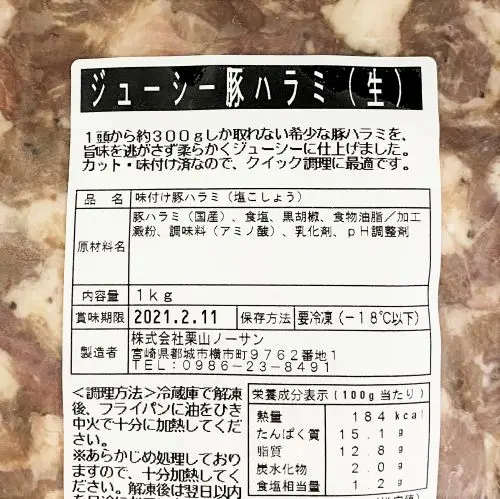 ジューシー豚ハラミ（生）
1頭から約300gしか取れない希少な豚ハラミを、
旨味を逃がさず柔らかくジューシーに仕上げました。
カット・味付け済なので、クイック調理に最適です。
品 名 味付け豚ハラミ（塩こしょう）
原材料名 豚ハラミ（国産）、食塩、黒胡椒、食物油脂／加工
澱粉、調味料（アミノ酸）、乳化剤、pH調整剤
内容量 1kg
賞味期限 2021.2.11 保存方法 要冷凍（－18℃以下）
製造者 株式会社栗山ノーサン
宮崎県都城市横市町9762番地1
TEL：0986－23－8491
＜調理方法＞冷蔵庫で解凍
後、フライパンに油をひき
中火で十分に加熱してくだ
さい。
※あらかじめ処理しており
ますので、十分加熱してく
ださい。解凍後は翌日以内
栄養成分表示（100g当たり）
熱量 184 kcal
たんぱく質 15.1 g
脂質 12.8 g
炭水化物 2.0 g
食塩相当量 1.2 g